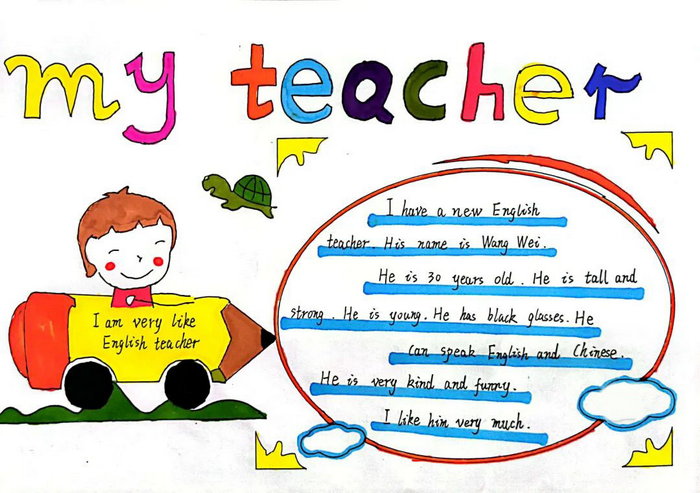 my teacher
I have a new English
teacher. His name is Wang Wei.
He is 30 years old. He is tall and
strong. He is young. He has black glasses. He
can speak English and Chinese.
He is very kind and funny.
I like him very much.
I am very like
English teacher